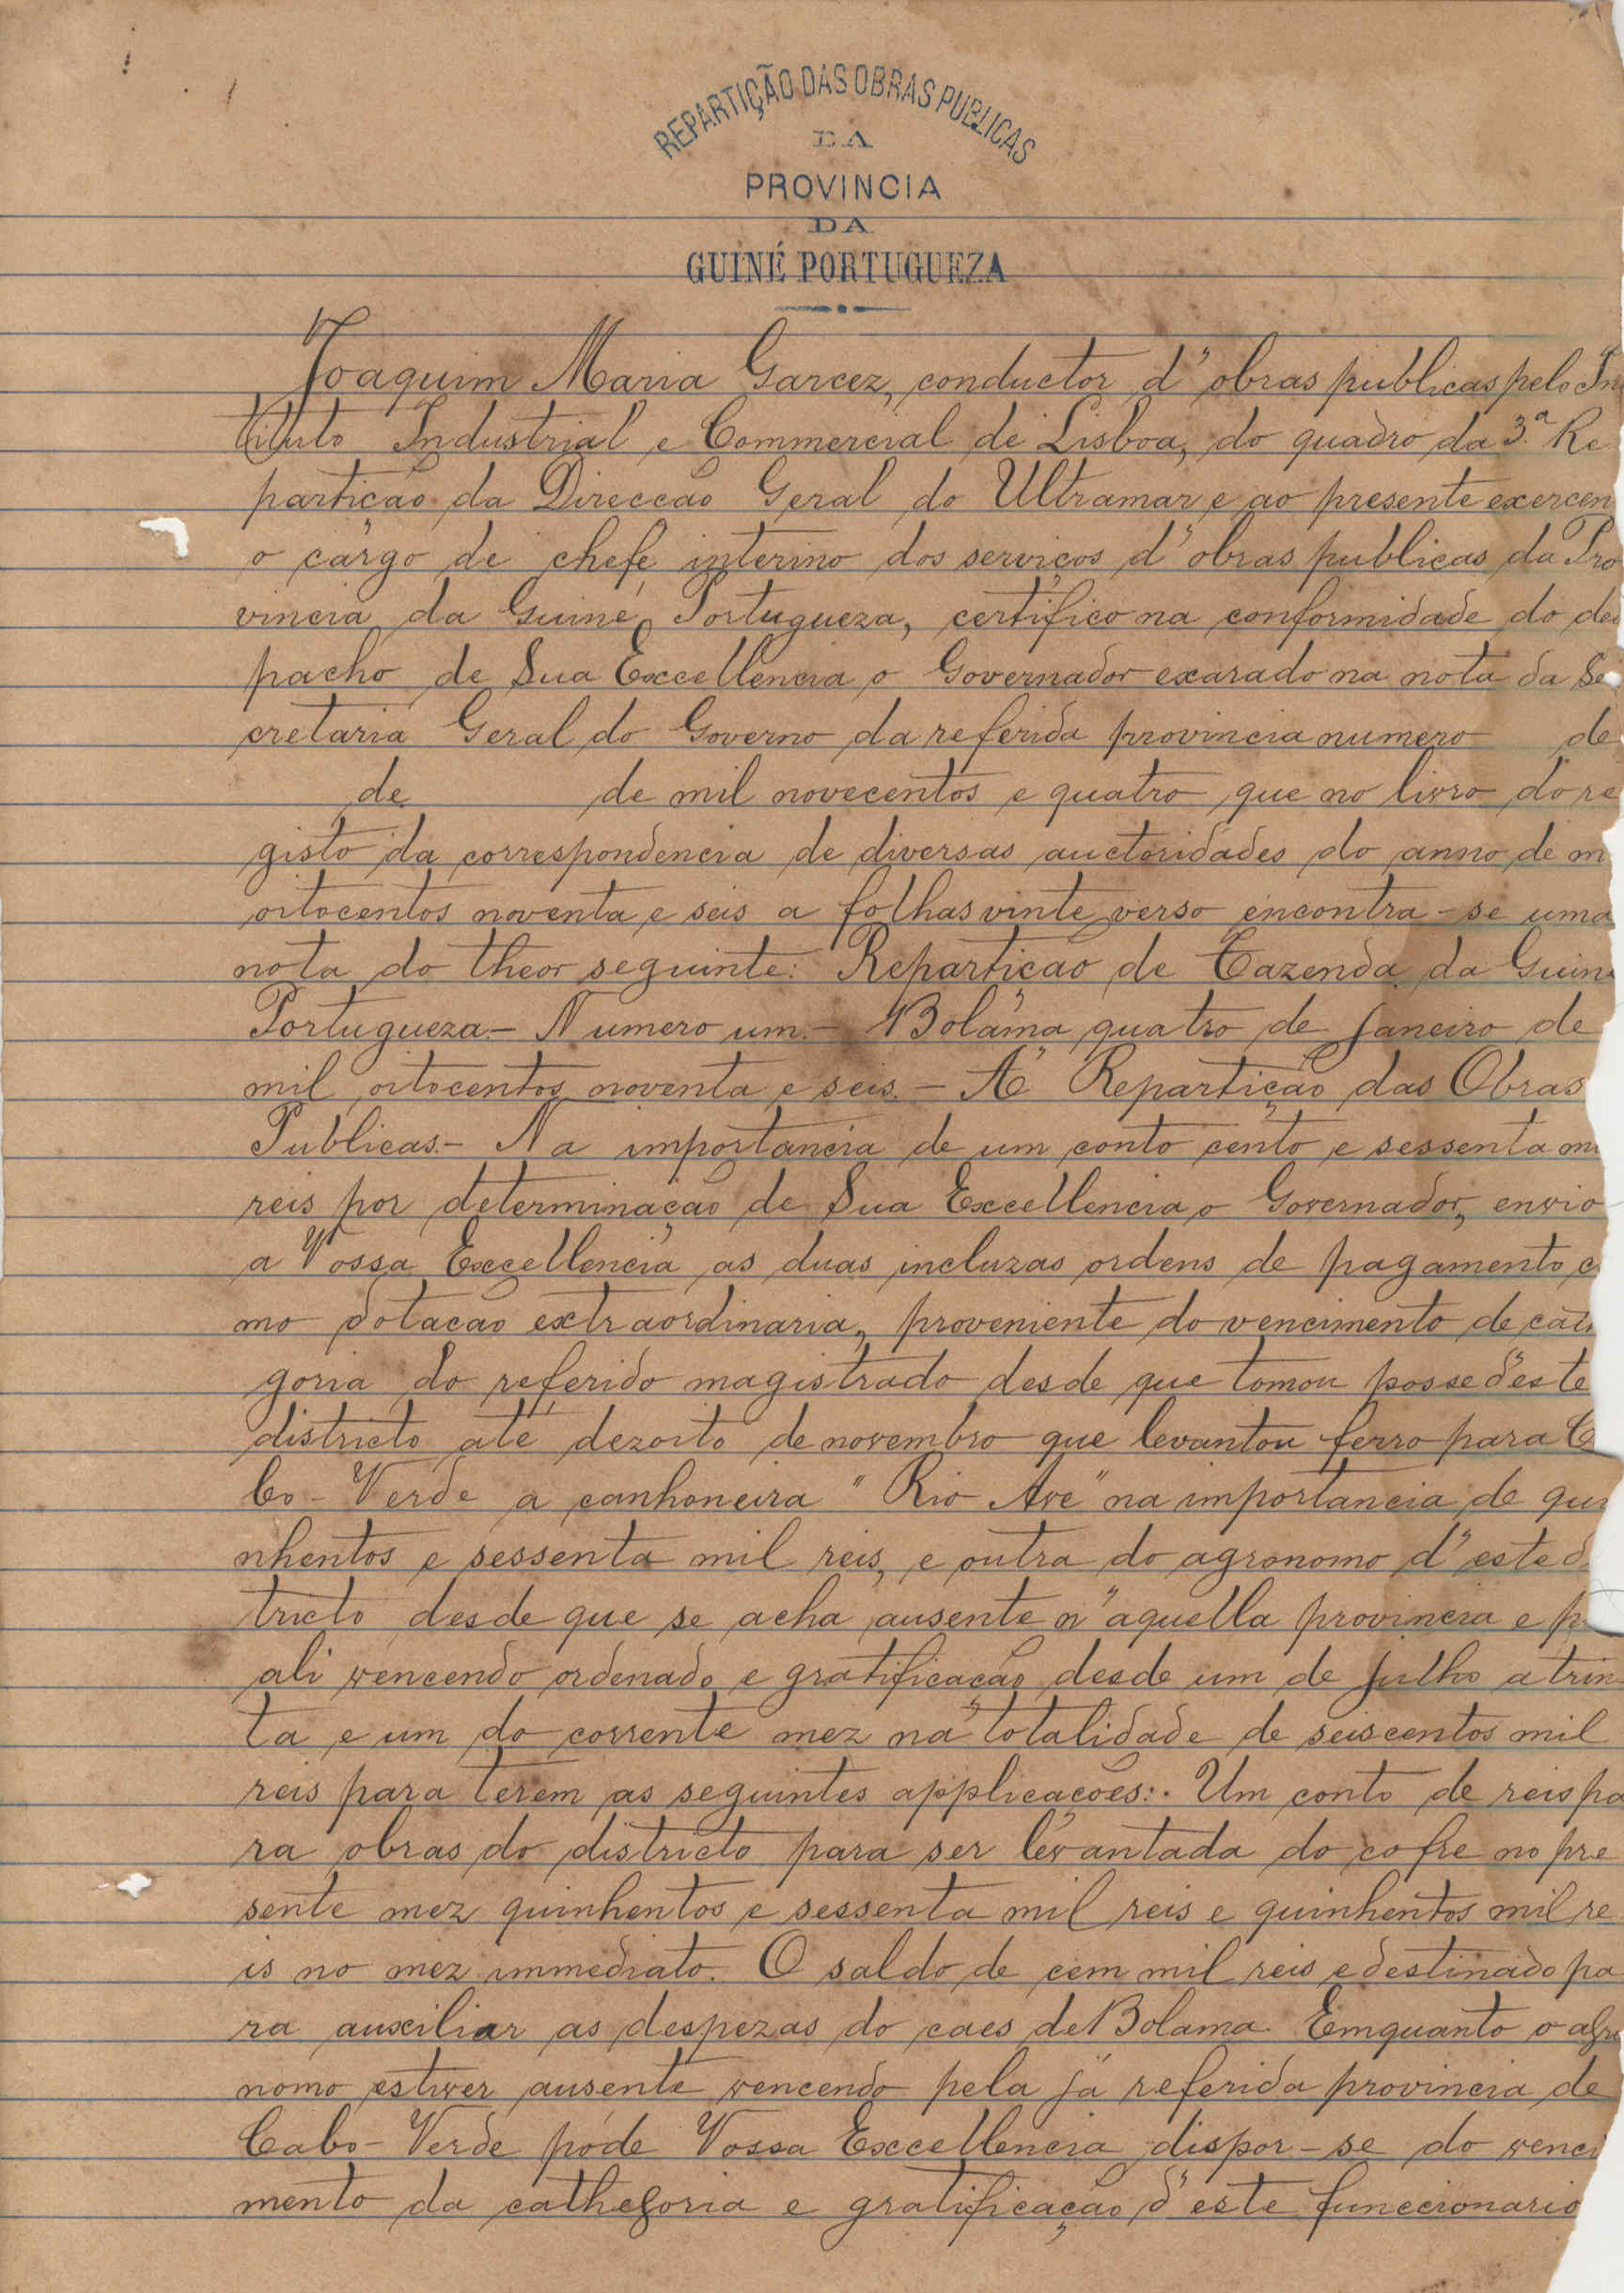 REPARTIÇÃO DAS OBRAS PUBLICAS
DA
PROVINCIA
DA
GUINÉ PORTUGUEZA
Joaquim Maria Garcez, conductor d'obras publicas pelo Ins
tituto Industrial e Commercial de Lisboa, do quadro da 3.ª Re
partição da Direcção Geral do Ultramar e ao presente exercen
o cargo de chefe interino dos serviços d'obras publicas da Pro
vincia da Guiné Portugueza, certifico na conformidade do des
pacho de Sua Excellencia o Governador exarado na nota da Se
cretaria Geral do Governo da referida provincia numero de
de de mil novecentos e quatro que no livro do re
gisto da correspondencia de diversas auctoridades do anno de m
oitocentos noventa e seis a folhas vinte verso encontra-se uma
nota do theor seguinte: Repartição de Fazenda da Guiné
Portugueza.- Numero um.- Bolama quatro de Janeiro de
mil oitocentos noventa e seis.- Á Repartição das Obras
Publicas.- Na importancia de um conto cento e sessenta mi
reis por determinação de Sua Excellencia o Governador, envio
a Vossa Excellencia as duas incluzas ordens de pagamento c
mo dotação extraordinaria, proveniente do vencimento de cath
goria do referido magistrado desde que tomou posse d'este
districto até dezoito de novembro que levantou ferro para C
bo-Verde a canhoneira "Rio Ave" na importancia de qui
nhentos e sessenta mil reis, e outra do agronomo d'este d
tricto desde que se acha ausente n'aquella provincia e p
ali vencendo ordenado e gratificação desde um de julho a trin
ta e um do corrente mez na totalidade de seiscentos mil
reis para terem as seguintes applicações:. Um conto de reis pa
ra obras do districto para ser levantada do cofre no pre
sente mez quinhentos e sessenta mil reis e quinhentos mil re
is no mez immediato. O saldo de cem mil reis e destinado pa
ra auxiliar as despezas do caes de Bolama. Emquanto o agro
nomo estiver ausente vencendo pela já referida provincia de
Cabo-Verde póde Vossa Excellencia dispor-se do venci
mento da cathegoria e gratificação d'este funccionario